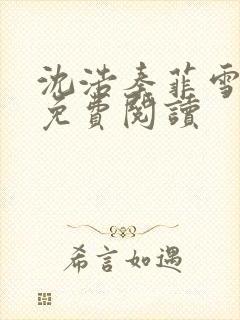 沈浩秦菲雪
免費閱讀
希言如遇